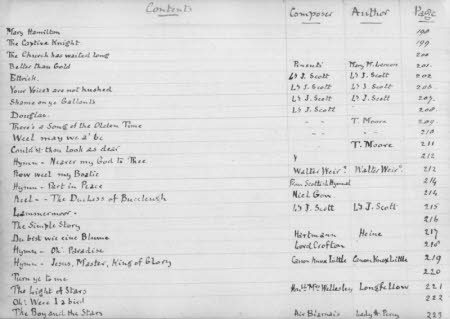 Contents Composer Author Page
Mary Hamilton 198
The Captive Knight 199
The Church has waited long 200
Better than Gold Mary M. 201.
Ettrick. Ly J. Scott Ly J. Scott 202
Your Voices are not hushed Ly J. Scott Ly J. Scott 206.
Shame on ye Gallants Ly J. Scott Ly J. Scott 207.
Douglas. Ly J. Scott " 208.
There's a Song of the Olden Time T. Moore 209.
Weel may we a' be " " 210
Could'st thou look as dear T. Moore 211
Hymn - Nearer my God to Thee 212
Row weel my Boatie Walter Weir? Walter Weir 212
Hymn - Part in Peace Scottish Hymnal 214
Reel - - The Duchess of Buccleugh Niel Gow 214
Lammermoor. Ly J. Scott Ly J. Scott 215
The Simple Story 216
Du bist wie eine Blume Hartmann Heine 217
Hymn - Oh! Paradise Lord Crofton 218
Hymn - Jesus, Master, King of Glory Canon Knox Little 219
Turn ye to me 220
The Light of Stars Mrs Wellesley Longfellow 221
Oh! Were I a bird 222
The Boy and the Stars Air Béarnais Lady H. 223